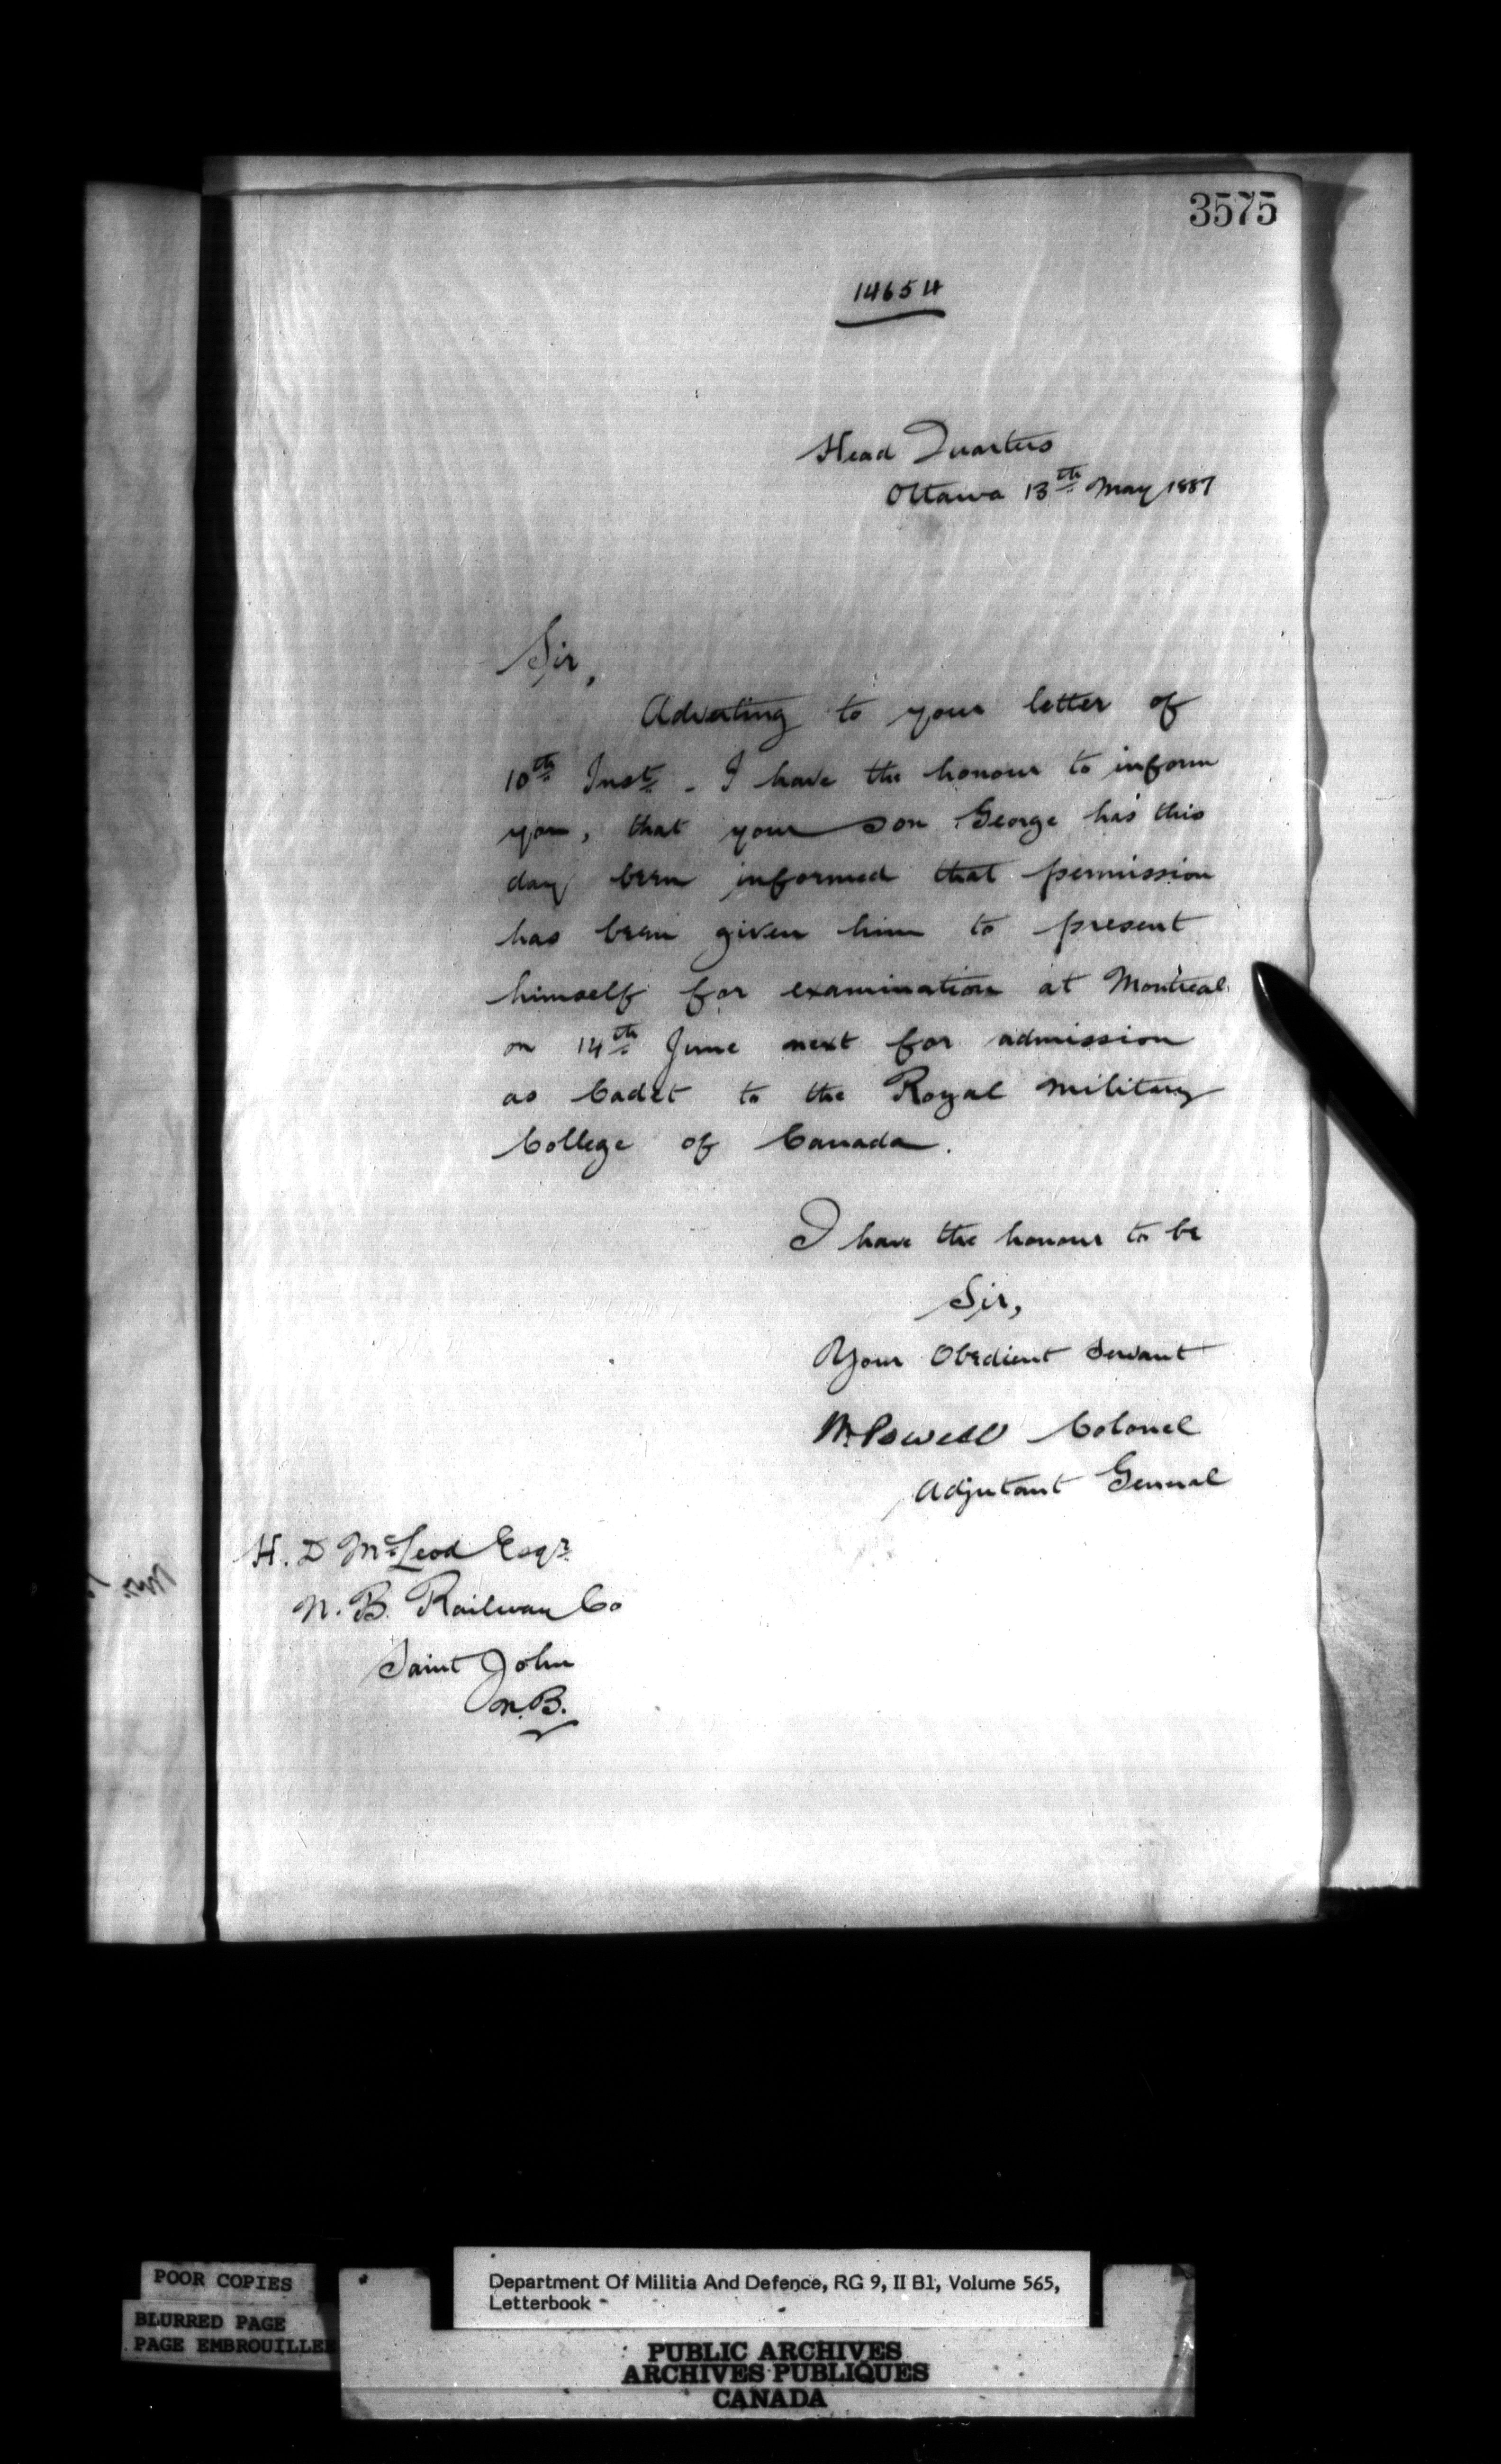 3575
14654
Head Quarters
Ottawa 13th May 1887
Sir,
Adverting to your letter of
10th Inst. - I have the honour to inform
you, that your son George has this
day been informed that permission
has been given him to present
himself for examination at Montreal
on 14th June next for admission
as Cadet to the Royal Military
College of Canada.
I have the honour to be
Sir,
Your Obedient Servant
W. Powell Colonel
Adjutant General
H. D McLeod Esqr.
N. B. Railway Co
Saint John
N.B.
POOR COPIES
BLURRED PAGE
PAGE EMBROUILLEE
Department Of Militia And Defence, RG 9, II B1, Volume 565,
Letterbook
PUBLIC ARCHIVES
ARCHIVES PUBLIQUES
CANADA